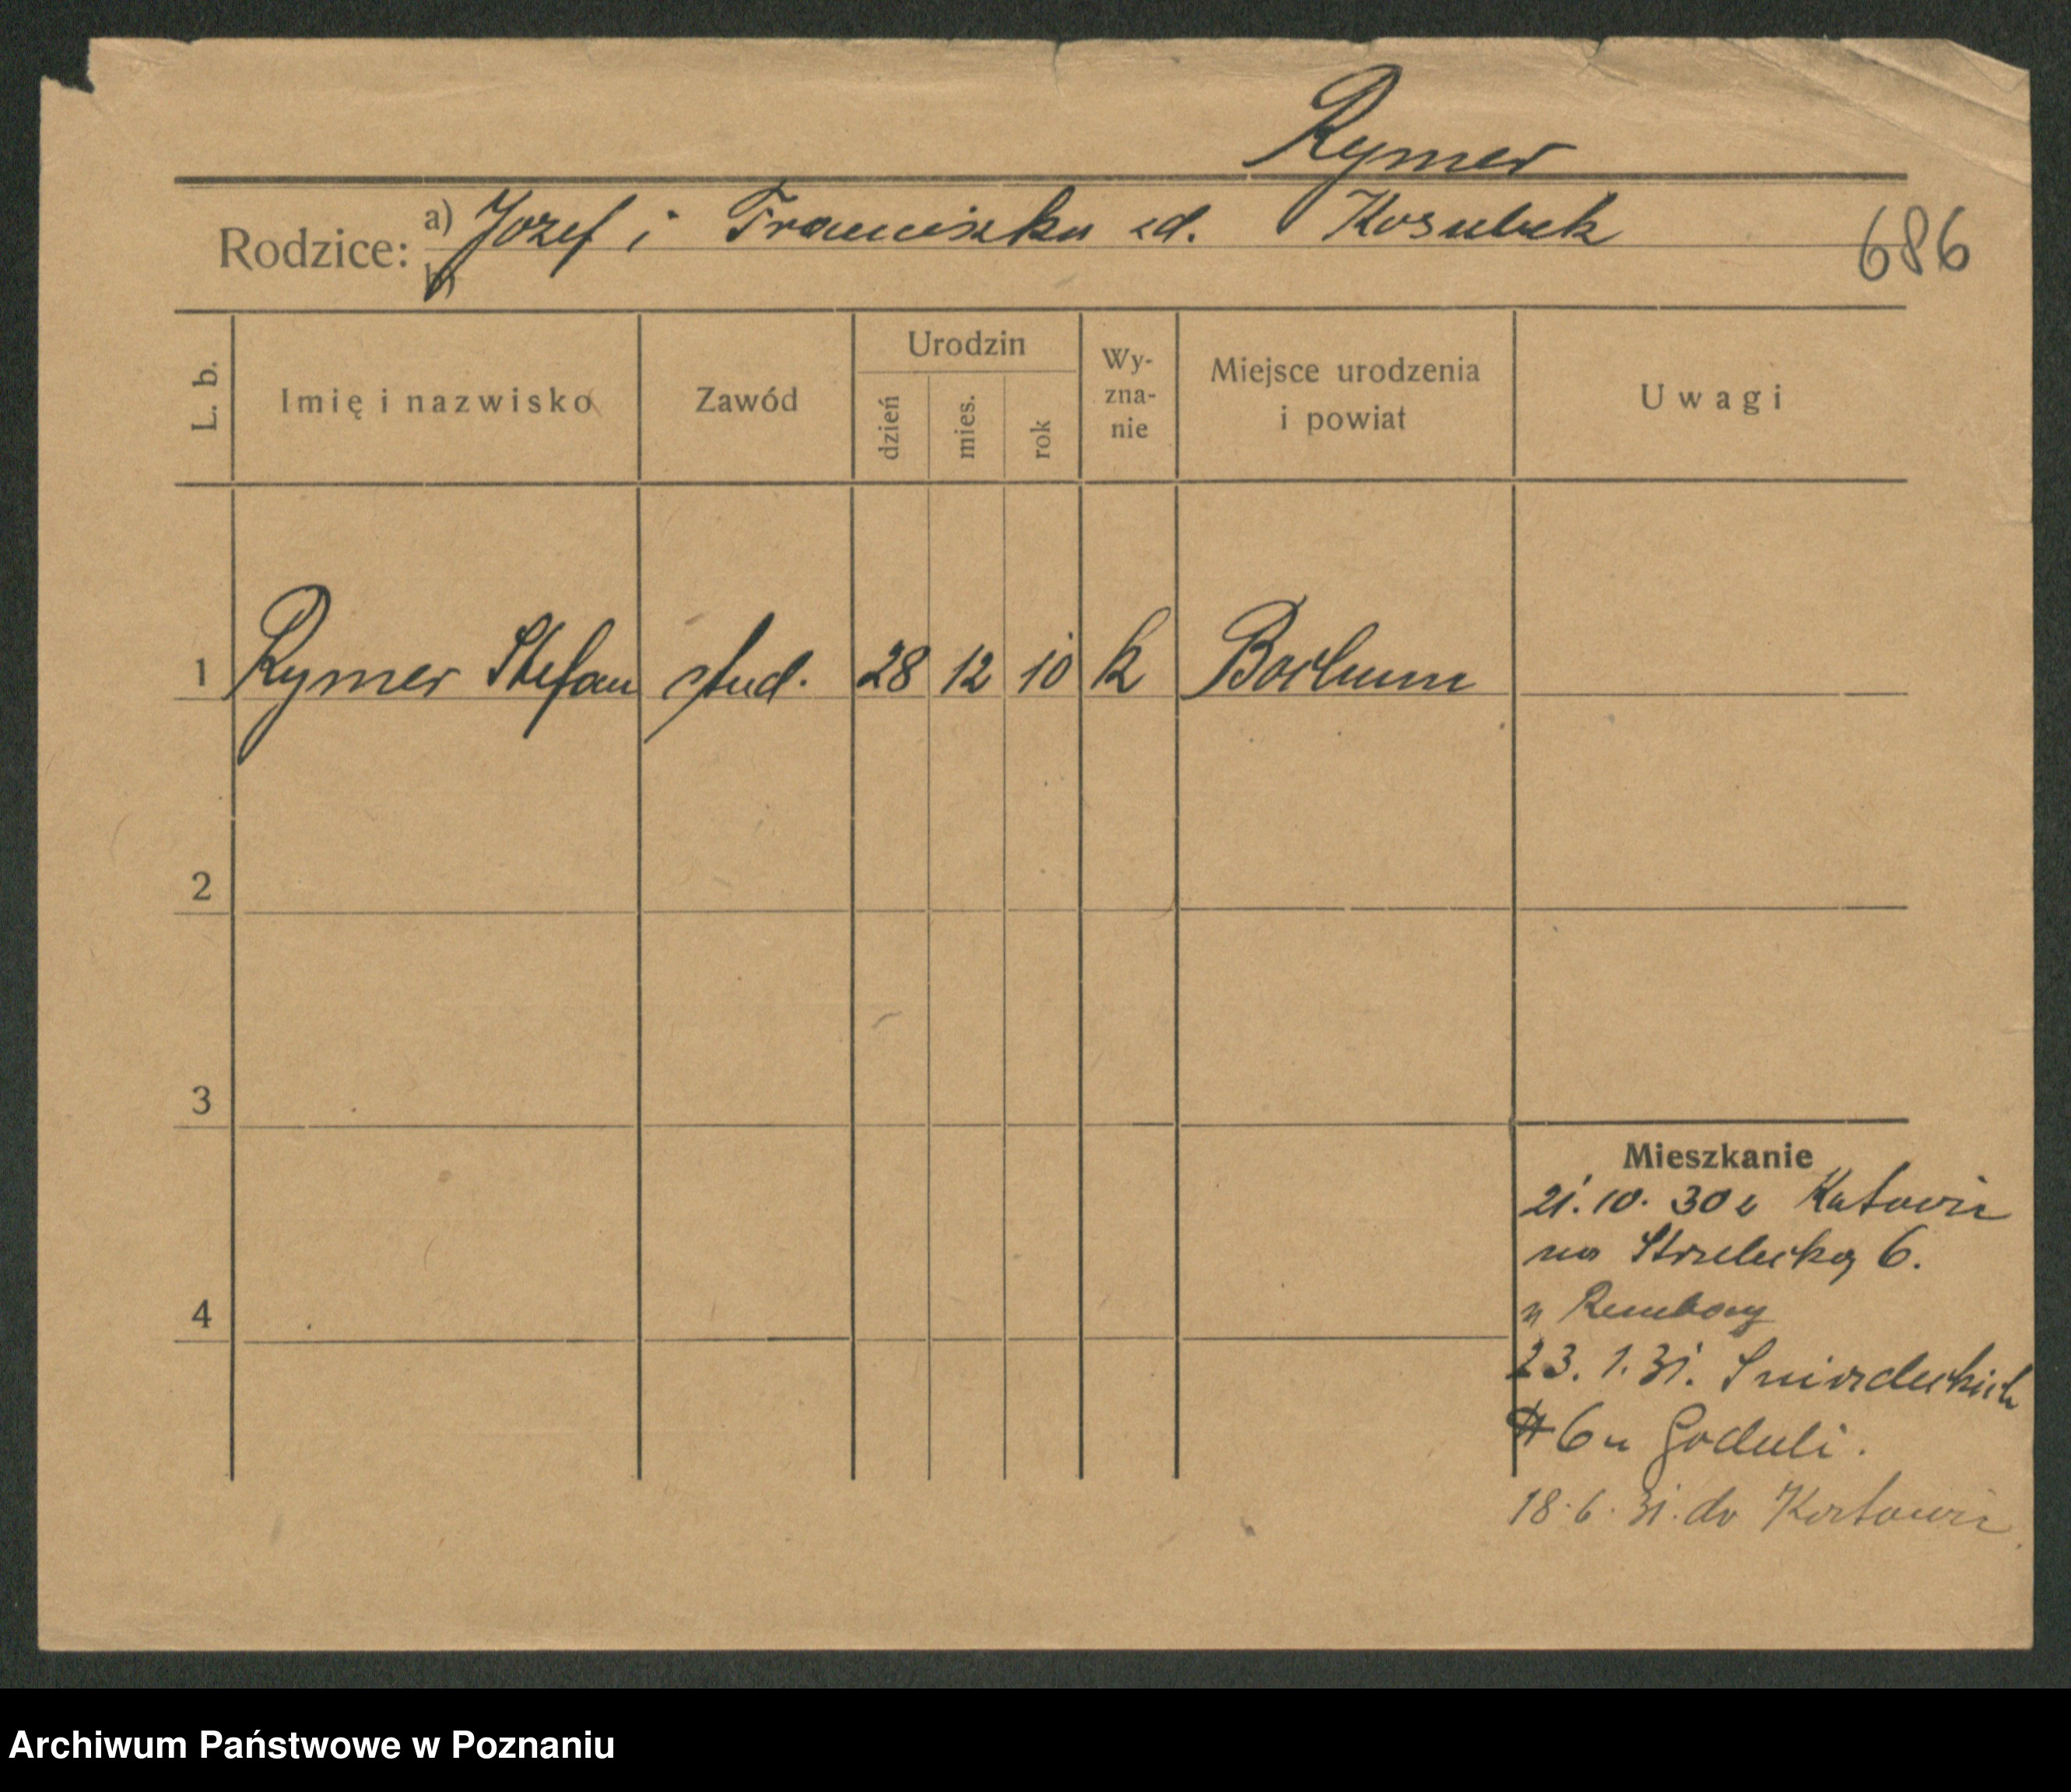 Rymer
Rodzice: a) Jozef i Franciszka zd. Kosubek
b)
686
L. b.
Imię i nazwisko
Zawód
Urodzin
dzień
mies.
rok
Wy-
zna-
nie
Miejsce urodzenia
i powiat
Uwagi
1 Rymer Stefan stud. 28 12 10 k Bochum
2
3
4
Mieszkanie
21. 10. 30 z Katowic
na Strzelecką 6.
u
23. 1. 31. Sniadeckich
6 u Goduli.
18. 6. 31. do Katowic
Archiwum Państwowe w Poznaniu